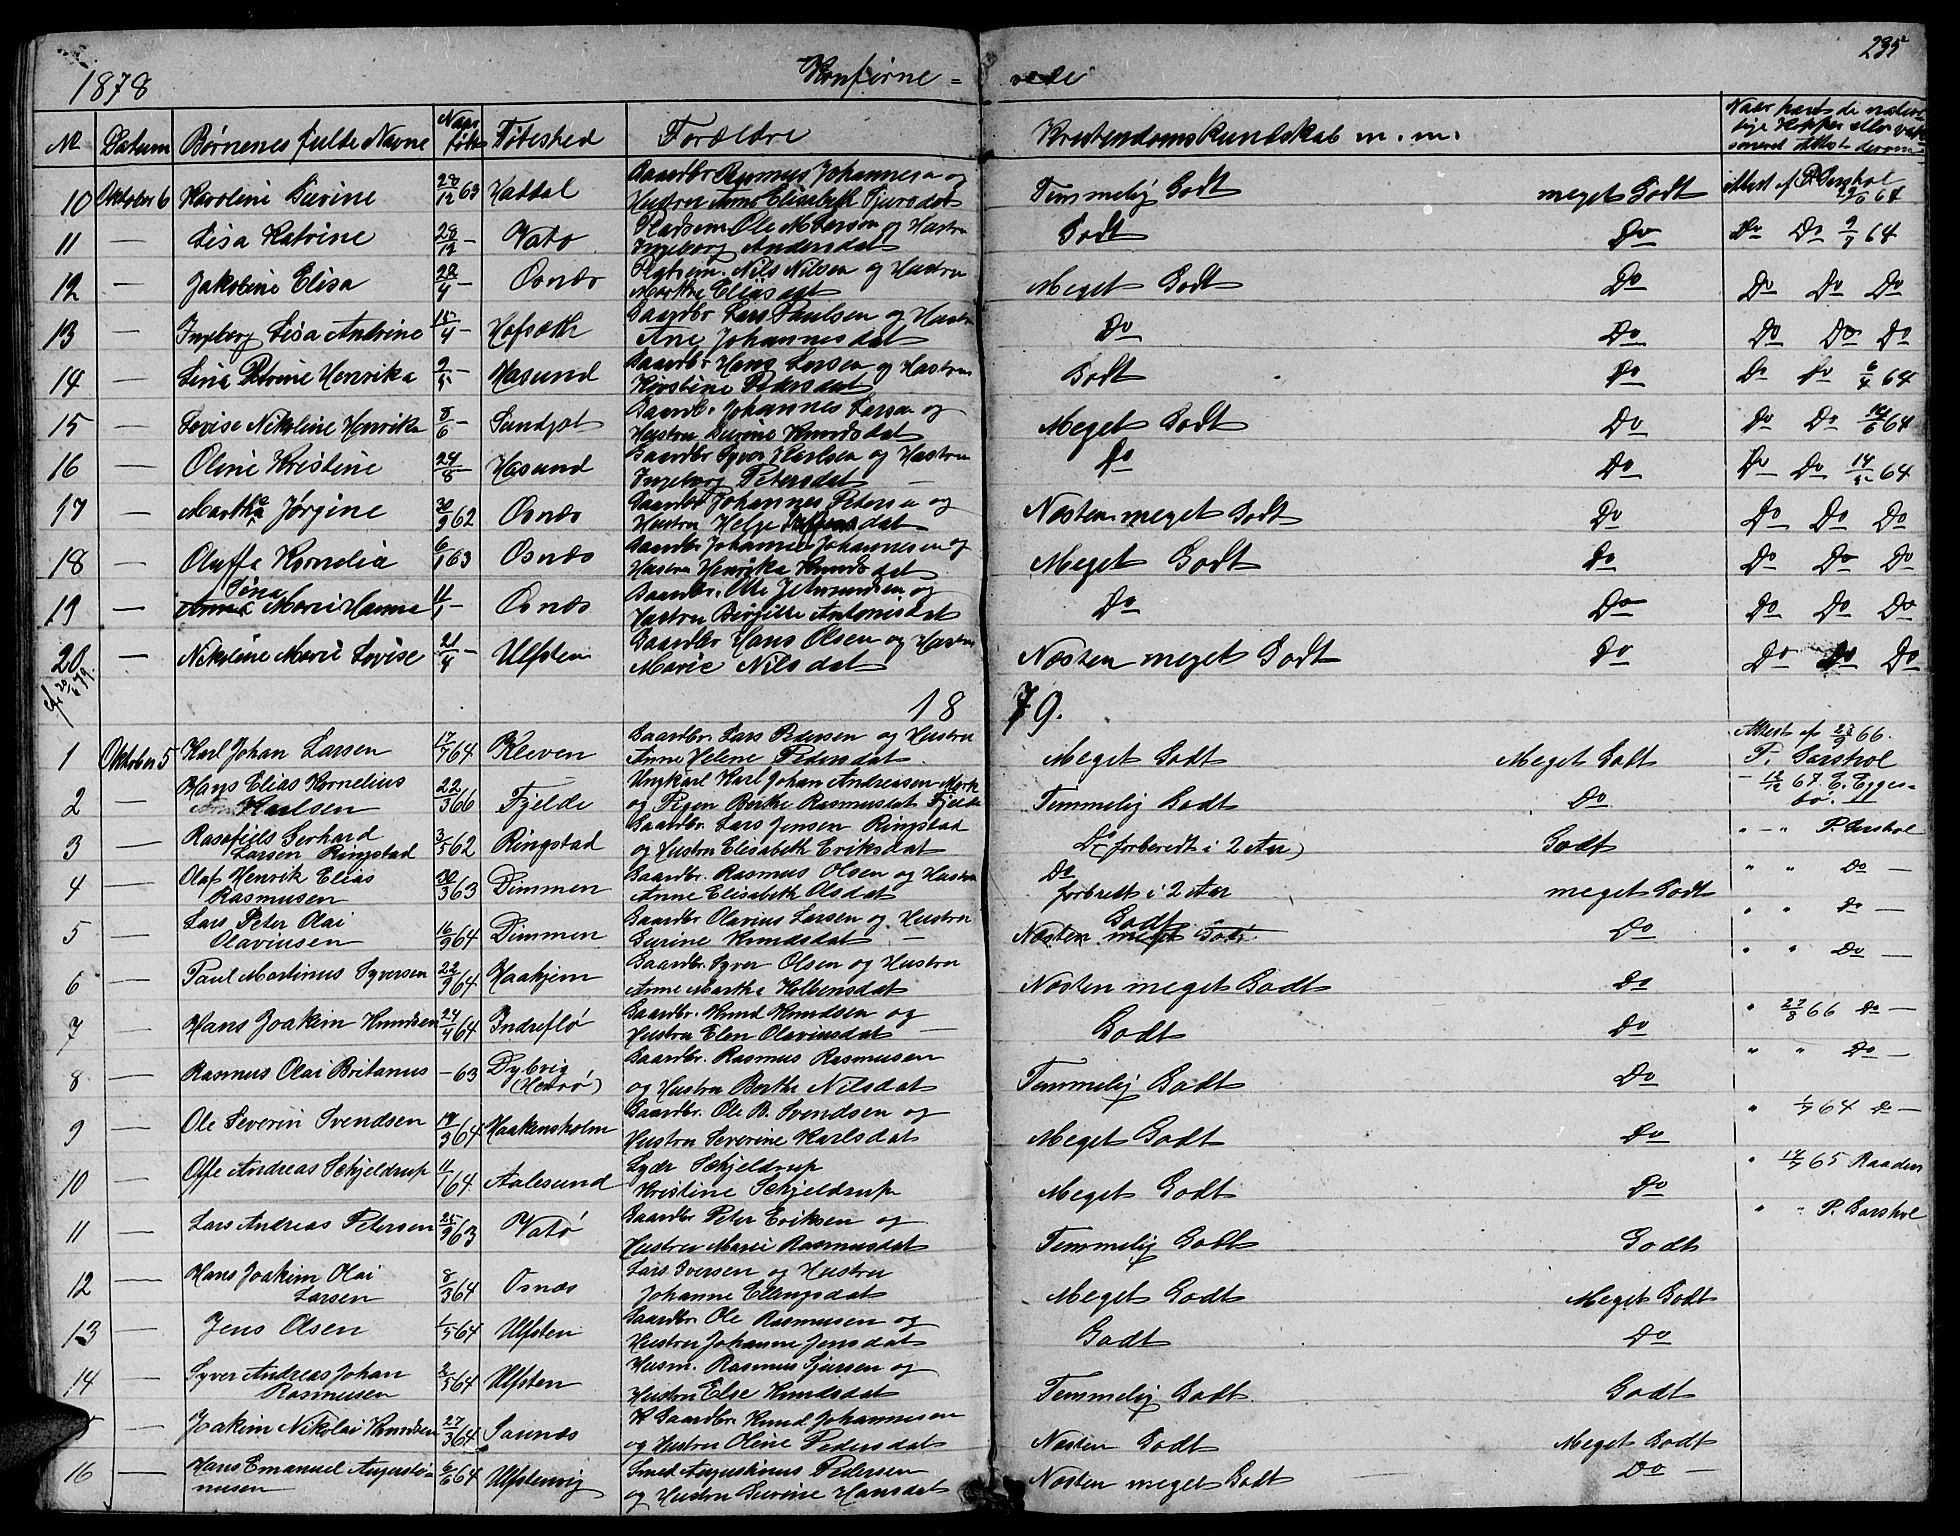 235
1878 Konfirme = rede
No Datum Børnenes fulde Navne Naar født Fødested Forældre Kristendoms Kundskab m. m. Naar havt de naturlige Kopper eller vaksineret Attest derom
10 Oktober 6 Karoline Gurine 28/12 63 Haddal Gaardbr Rasmus Johannesen og Hustru Anne Elisabeth Sjursdat Temmelig Godt meget Godt Attest af P. Garshol 64
11 — Lisa Katrine 28/12 — Vatø Pladsem Ole Matersen og Hustru Ingeborg Andersdat Godt Do Do Do 9/7 64
12 — Jakobine Elisa 22/4 — Osnæs Pladsem. Nils Nilsen og Hustru Marthe Eliasdat Meget Godt Do Do Do Do
13 — Ingeborg Lisa Andrine 15/4 — Hofsæth Gaardbr Lars Paulsen og Hustru Ane Johannesdat Do Do Do Do Do
14 — Lina Petrine Henrika 9/5 — Hasund Gaardbr Hans Larsen og Hustru Kirstine Pedersdat Godt Do Do Do 6/4 64
15 — Lovise Nikoline Henrika 8/6 — Sundgot Gaardb. Johannes Larsen og Hustru Gurine Knudsdat Meget Godt Do Do Do 64
16 — Oline Kristine 24/8 — Hasund Gaardbr Syver Karlsen og Hustru Ingeborg Petersdat — Do Do Do Do 14/5 64
17 — Marthe Jørgine 30/9 62 Osnæs Gaardbr Johannes Petersen og Hustru Helge dat Næsten meget Godt Do Do Do Do
18 — Oluffa Kornelia 6/1 63 Osnæs Gaardbr Johannes Johannesen og Hustru Henrika Knudsdat Meget Godt Do Do Do Do
19 — Sina Marie Hanna 11/1 — Osnæs Gaardbr. og Hustru Birgitte Antonisdat Do Do Do Do Do
20 — Nikoline Marie Lovise 21/4 — Ulfsten Gaardbr Hans Olsen og Hustru Marie Nilsdat Næsten meget Godt Do Do Do Do
1879.
1 Oktober 5 Karl Johan Larsen 17/7 64 Kleven Gaardbr. Lars Pedersen og Hustru Anne Helene Pedersdat Meget Godt Meget Godt Attest af 27/9 66. P. Garshol
2 — Hans Elias Kornelius Karlsen 22/3 66 Fjelde Ungkarl Karl Johan Andreasen Mork og Pigen Berthe Rasmusdat Fjelde Temmelig Godt Do — 12/12 67 E. Eggesbø.
3 — Rasefield Gerhard Larsen Ringstad 3/5 62 Ringstad Gaardbr. Lars Jensen Ringstad og Hustru Elisabeth Eriksdat Do (forberedt i 2 Aar) Godt " — " P. Garshol
4 — Olaf Henrik Elias Rasmusen 30/3 63 Dimmen Gaardbr. Rasmus Olsen og Hustru Anne Elisabeth Olsdat Do forbredt i 2 Aar meget Godt " " Do —
5 — Lars Peter Olai Olaviusen 16/9 64 Dimmen Gaardbr Olavius Larsen og Hustru Gurine Knudsdat — Næsten meget Godt Godt Do " " Do —
6 — Paul Martinus Syversen 22/9 64 Haahjem Gaardbr. Syver Olsen og Hustru Anne Martha Kolbensdat Næsten meget Godt Do " " Do —
7 — Hans Joakim Knudsen 24/4 64 Indreflø Gaardbr. Knud Knudsen og Hustru Elen Olaviusdat — Godt Do " 22/8 66 Do —
8 — Rasmus Olai Britanus — 63 Dybvig (Herrø) Gaardbr. Rasmus Rasmusen og Hustru Berthe Nilsdat Temmelig Godt Do " " Do —
9 — Ole Severin Svendsen 19/3 64 Haakensholm Gaardbr. Ole B. Svendsen og Hustru Severine Karlsdat Meget Godt Do " 1/7 64 Do —
10 — Offe Andreas Schjeldrup 11/1 64 Aalesund Lydr Schjeldrup Kristine Schjeldrup Meget Godt Do " 14/7 65 Raaden
11 — Lars Andreas Petersen 25/9 63 Vatø Gaardbr Peter Eriksen og Hustru Marie Rasmusdat Temmelig Godt Godt " " P. Garshol
12 — Hans Joakim Olai Larsen 8/3 64 Osnæs Lars Iversen og Hustru Johanne Ellingsdat Meget Godt Meget Godt
13 — Jens Olsen 1/5 64 Ulfsten Gaardbr. Ole Rasmusen og Hustru Johanne Jensdat Godt Do
14 — Syver Andreas Johan Rasmusen 2/5 64 Ulfsten Husm. Rasmus Sjursen og Hustru Else Knudsdat Temmelig Godt Godt
— Joakim Nikolai Knudsen 27/3 64 Saunæs K Gaardbr. Knud Johannesen og Hustru Oline Pedersdat Næsten Godt Meget Godt
16 — Hans Emanuel Augustinusen 6/6 64 Ulfstenvig Smed Augustinus Pedersen og Hustru Gurine Hansdat Næsten meget Godt Do —